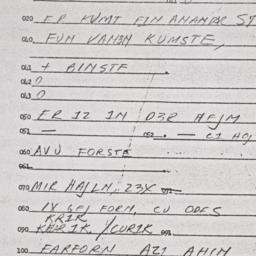 020 ER KUMT FIN ANANDER ST
040 FUN VANEN KUMSTE,
041 + BINSTE
042 0
043 0
050 ER IZ IN D3R HEJM
051 —
052 — CI HEJ
060 AVU FORSTE
061
070 MIR HAJLN, 23X 071
080 IX GEJ FORN, CU ODES
KRIK
090 KHRIK /CURIK 091
100 FARFORN AZI AHIM